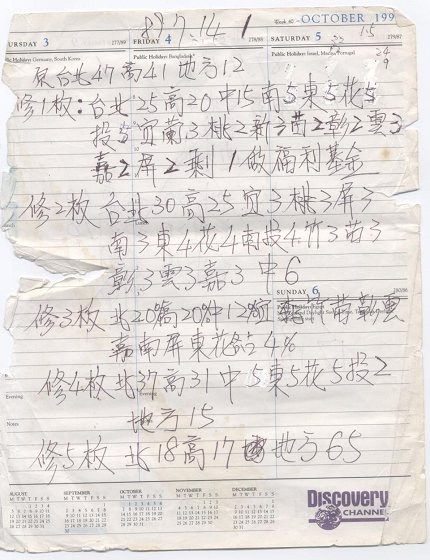 87.7.14 1
Week 40 OCTOBER 199
URSDAY 3 277/89 FRIDAY 4 278/88 SATURDAY 5 279/87
Public Holiday: Germany, South Korea Public Holiday: Bangladesh Public Holiday: Israel, Macau, Portugal
15
24
9
原台北47高41地方12
修1板:台北25高20中15南5東5花5
投5宜蘭3桃2新3苗2彰2雲3
嘉2屏2剩1做福利基金
修2板 台北30高25宜3桃3屏3
南3東4花4南投4竹3苗3
彰3雲3嘉3 中6
SUNDAY 6 280/86
修3板 北20%高20%中12%宜 苗彰雲
嘉南屏東花 4%
修4板 北37高31中5東5花5投2
Evening Evening
地方15
Notes
修5板 北18高17 地方65
AUGUST SEPTEMBER OCTOBER NOVEMBER DECEMBER
M T W T F S S M T W T F S S M T W T F S S M T W T F S S M T W T F S S
Discovery
CHANNEL